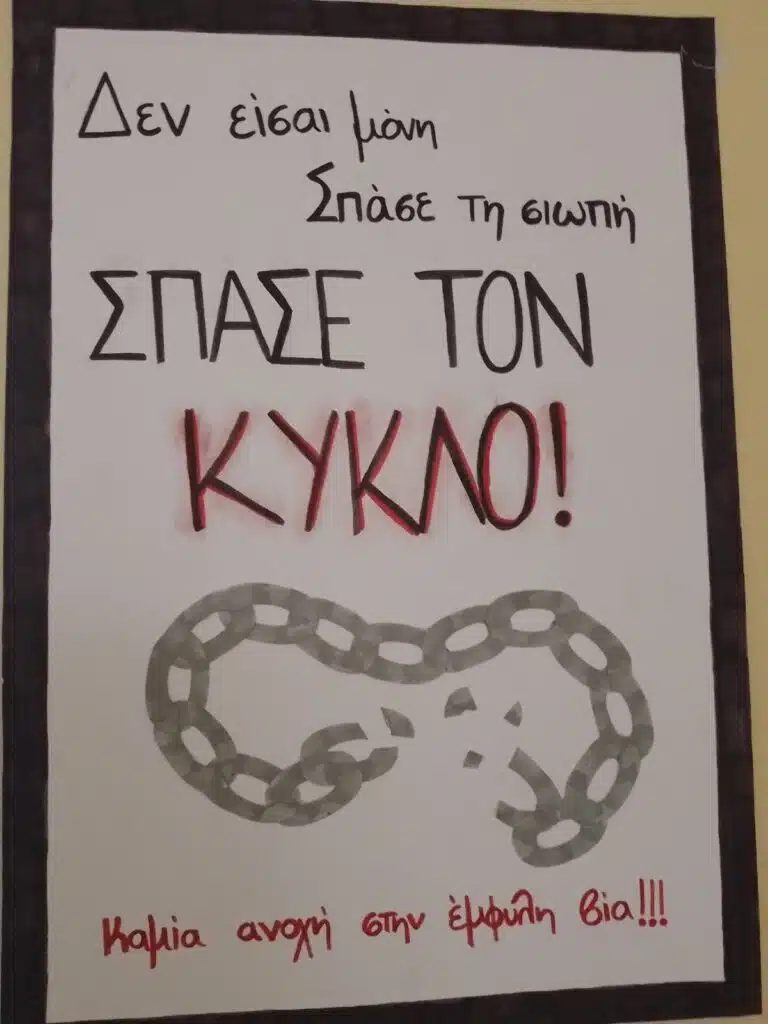 Δεν είσαι μόνη
Σπάσε τη σιωπή
ΣΠΑΣΕ ΤΟΝ
ΚΥΚΛΟ!
Καμία ανοχή στην έμφυλη βία!!!